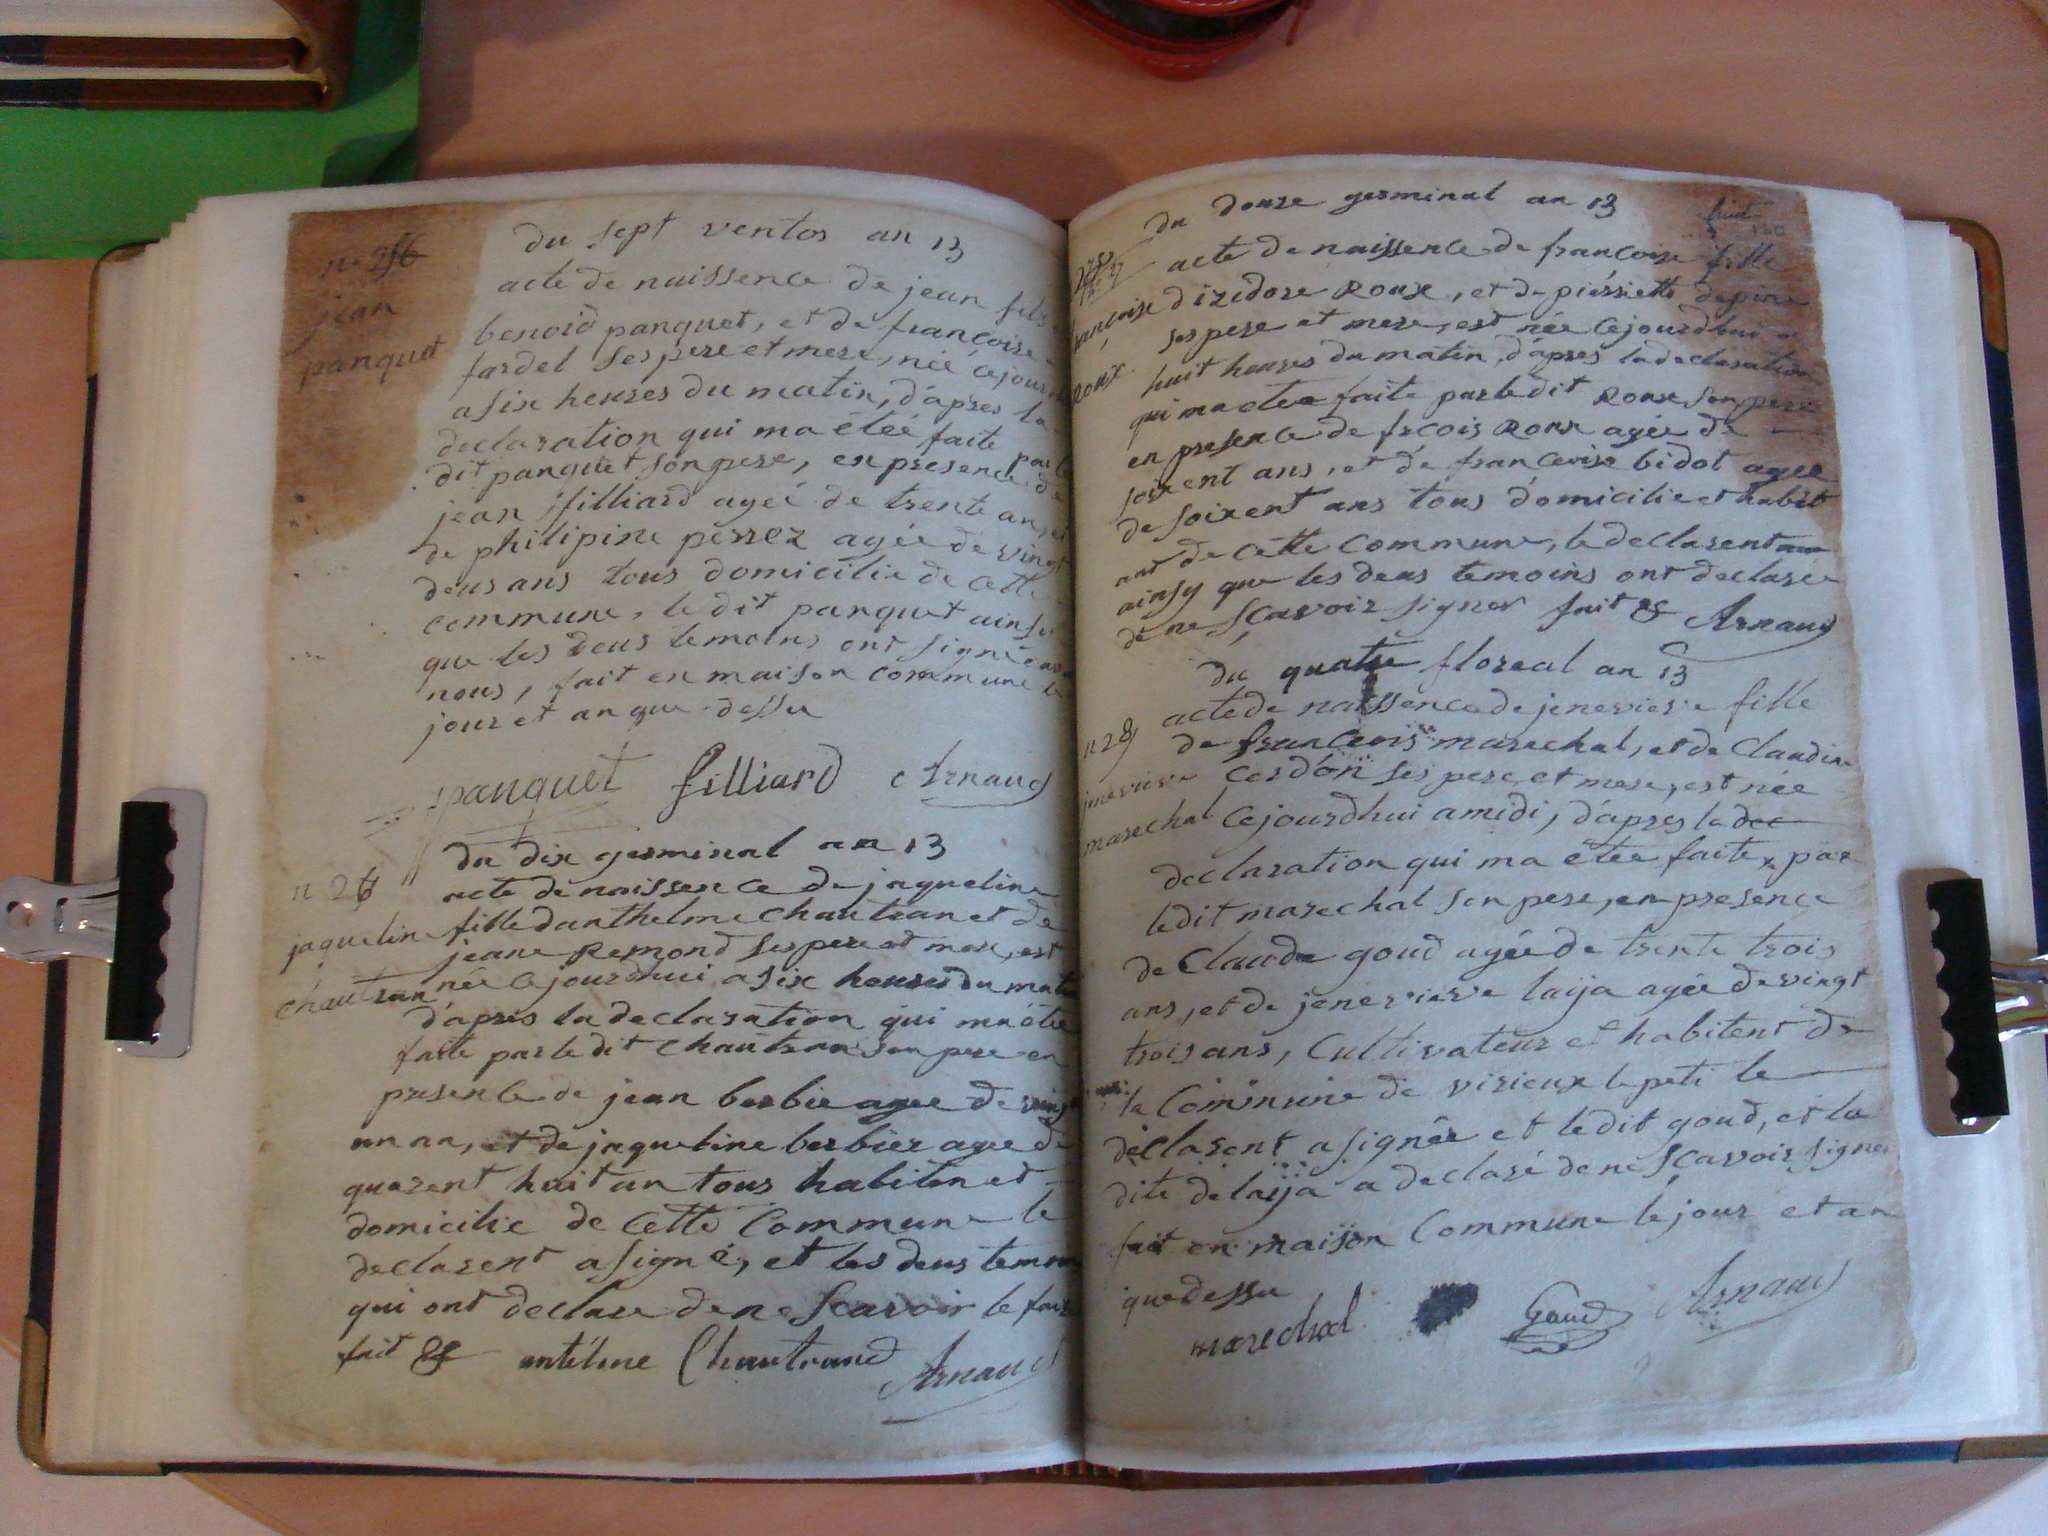 du sept ventos an 13
acte de naissence de jean fils
jean
panquet
benoid panquet, et de francoise
fardel ses pere et mere, née cejour
a six heures du matin, d'apres la
declaration qui ma étéé faite par
dit panquet son pere, en presence de
jean filliard ageé de trente ans et
de philipine perrez ageé de vingt
deus ans tous domicilie de cette
commune, le dit panquet ainsi
que les deus temoins ont signé
nous, fait en maison commune le
jour et an que dessu
panquet filliard Arnaud
du dix germinal an 13
n 26
jaqueline
chautran
acte de naissence de jaqueline
fille danthelme chautran et de
jeane Remond ses pere et mere, est
née cejourdhui a six heures du matin
d'apres la declaration qui ma étéé
faite par le dit chautran son pere en
presence de jean berbie agee de vingt
un an, et de jaqueline berbier agee de
quarent huit an tous habiten et
domicilie de cette Commune le
declarent a signé, et les deus temoin
qui ont declare de ne scavoir le faire
fait & antelme Chautrand Arnaud
du douze germinal an 13
francoise
Roux
acte de naissence de francoise fille
d'izidore Roux, et de pierrette depine
ses pere et mere, est née cejourdhui a
huit heures du matin, d'apres la declaration
qui ma etee faite par le dit Roux son pere
en presence de frcois Roux ageé de
soixent ans, et de francoise bidot agee
de soixent ans tous domicilie et habit
ant de cette commune, le declarent
ainsy que les deus temoins ont declarée
de ne scavoir signer fait & Arnaud
du quatre floreal an 13
n 28
jenevieve
marechal
acte de naissence de jenevieve fille
de francois marechal, et de Claudine
Cerdon ses pere et mere, est née
Cejourdhui a midi, d'apres la dec
declaration qui ma etée faite par
le dit marechal son pere, en presence
de Claude goud ageé de trente trois
ans, et de jenevieve laija ageé de vingt
trois ans, Cultivateur et habitent de
la Commune de virieux le peti le
declarent a signée et ledit goud, et la
dite delaija a declaré de ne scavoir signer
fait en maison Commune le jour et an
que dessu
marechal Goud Arnaud